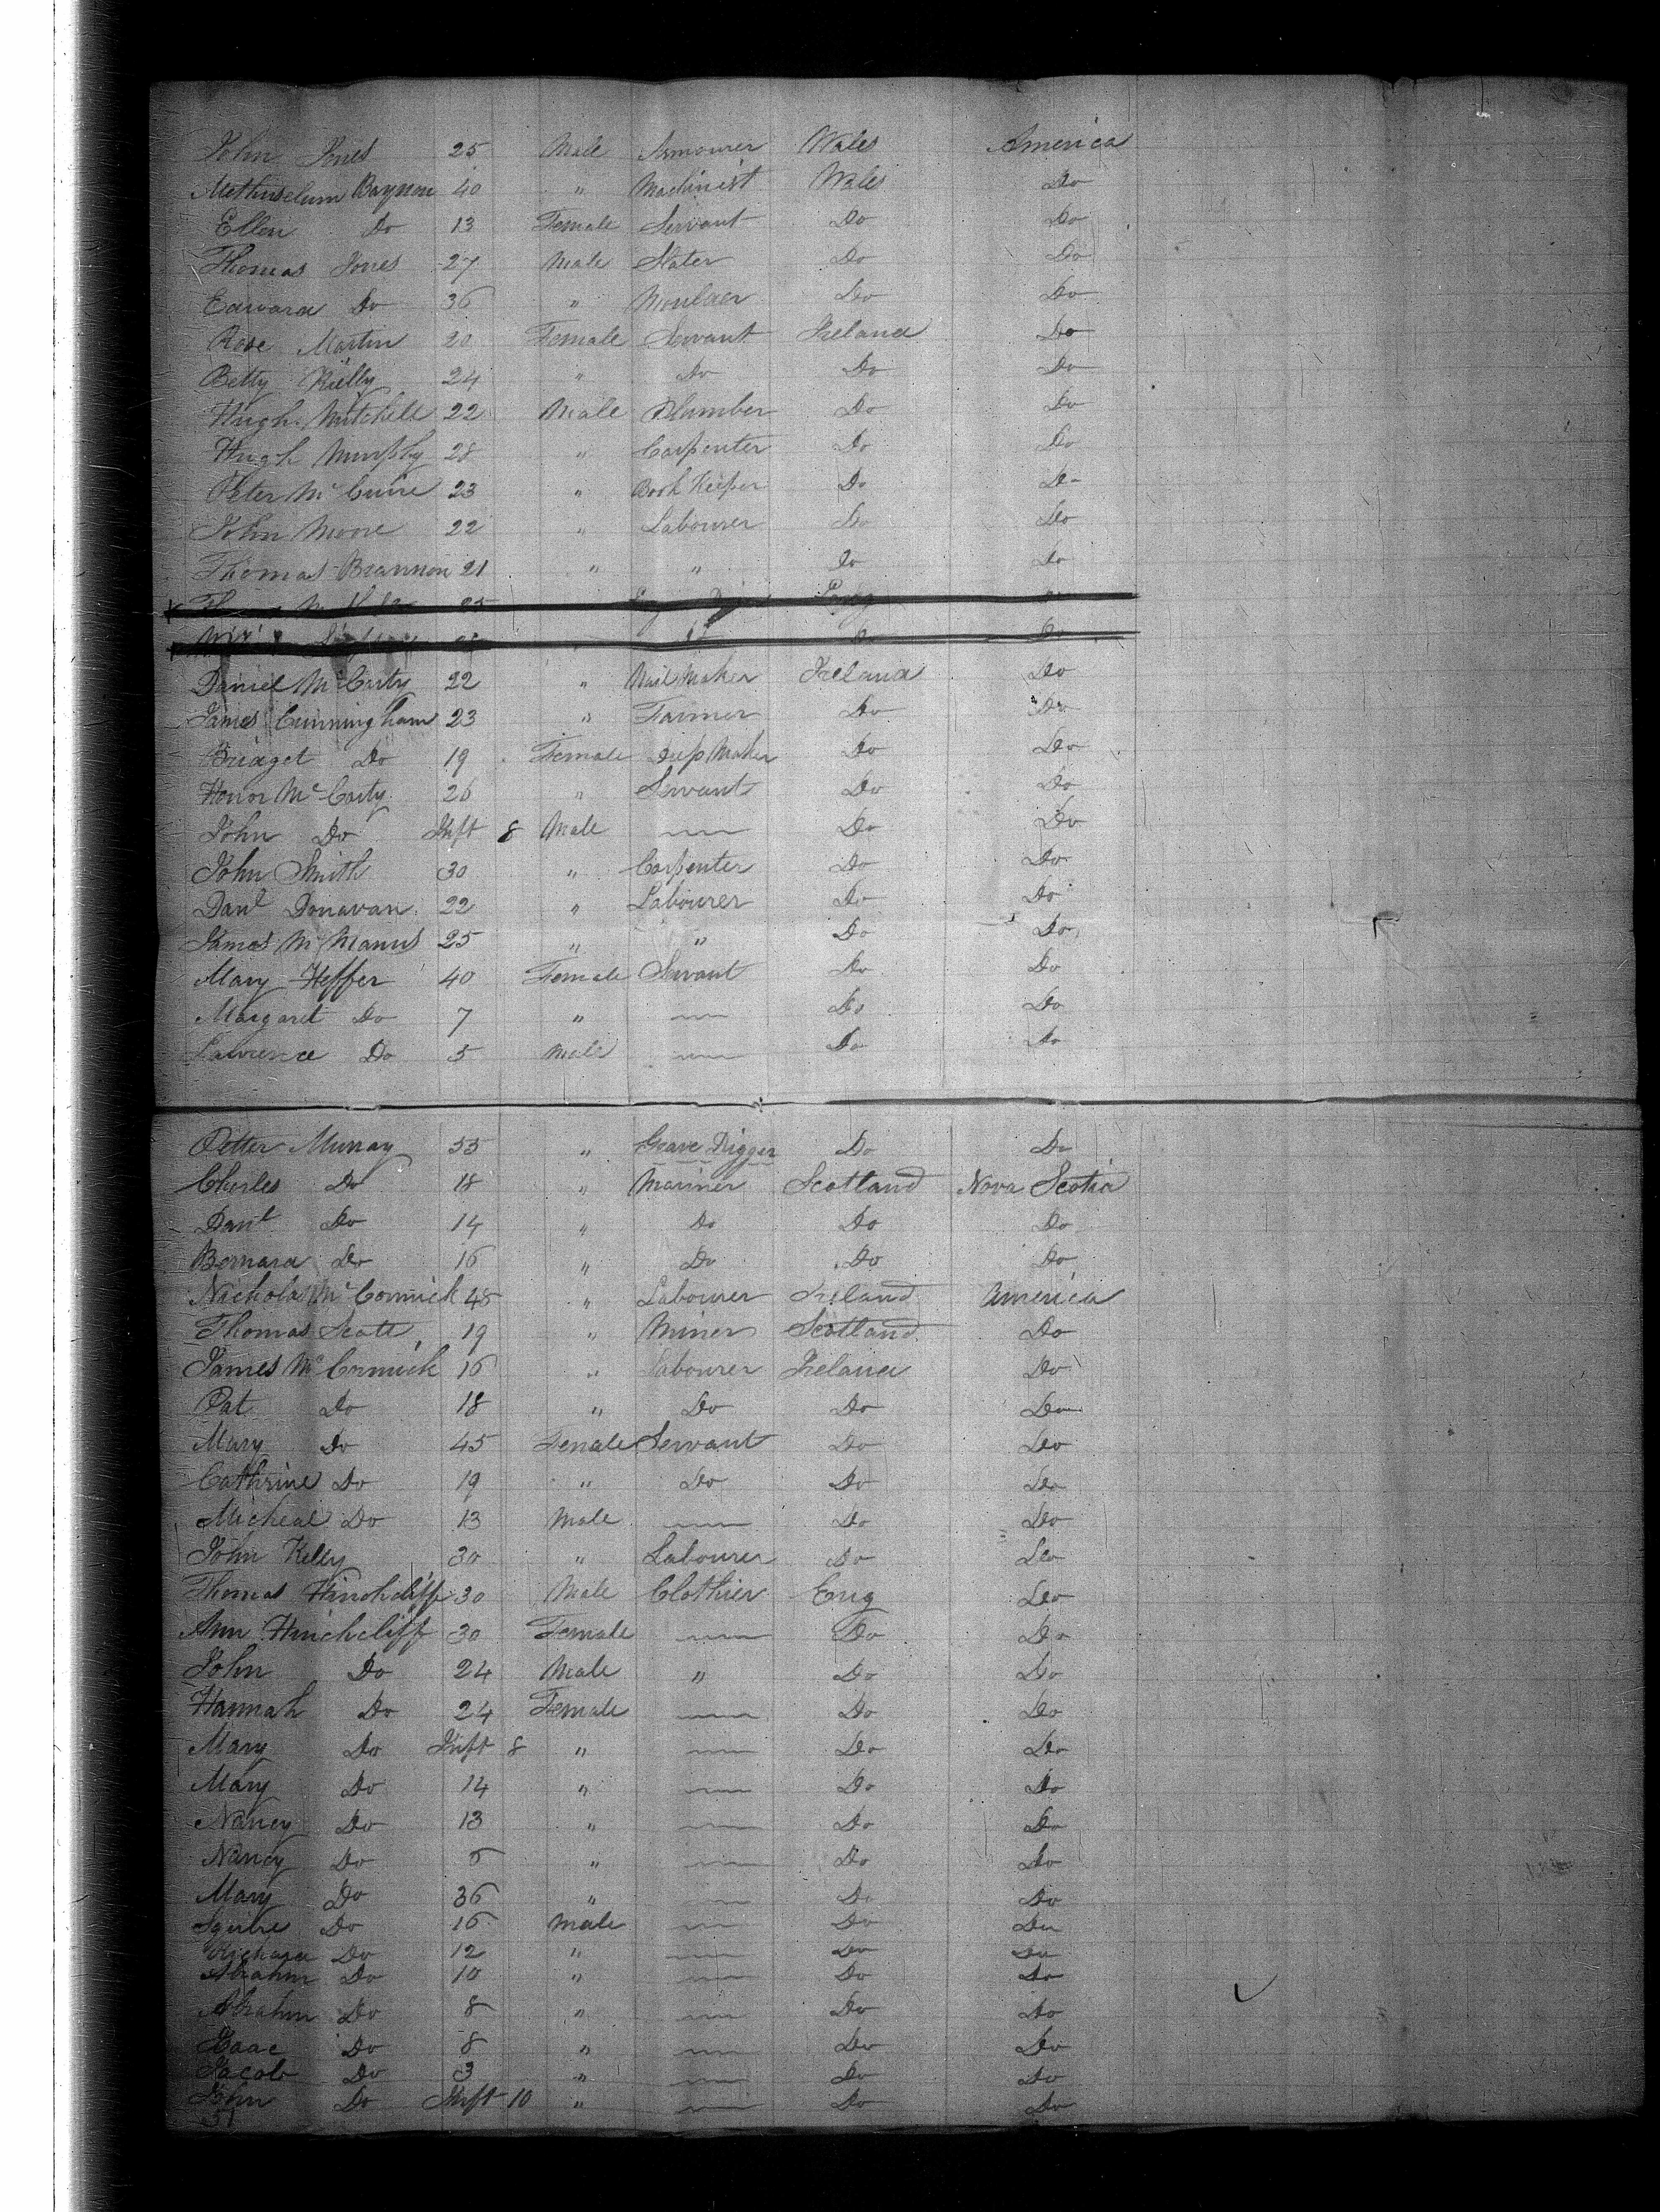 John Jones 25 Male Armourer Wales America
Methuselum Baynon 40 " Machinist Wales Do
Ellen Do 13 Female Servant Do Do
Thomas Jones 27 Male Slater Do Do
Edward Do 36 " Moulder Do Do
Rose Martin 20 Female Servant Ireland Do
Betty Rielly 24 " Do Do Do
Hugh Mitchell 22 Male Plumber Do Do
Hugh Murphy 28 " Carpenter Do Do
Peter Mc Guire 23 " Book Keeper Do Do
John Moore 22 " Labourer Do Do
Thomas Brannon 21 " " Do Do
25
Do
Daniel Mc Carty 22 " Nail Maker Ireland Do
James Cunningham 23 " Farmer Do Do
Bridget Do 19 Female Drep Maker Do Do
Honor Mc Carty 26 " Servant Do Do
John Do Inft 8 Male Do Do
John Smith 30 " Carpenter Do Do
Danl Donavan 22 " Labourer Do Do
James Mc Manus 25 " " Do Do
Mary Heffer 40 Female Servant Do Do
Margaret Do 7 " Do Do
Lawrence Do 5 Male Do Do
Petter Murray 55 " Grave Digger Do Do
Charles Do 18 " Mariner Scotland Nova Scotia
Danl Do 14 " Do Do Do
Bernard Do 16 " Do Do Do
Nicholas Mc Cormick 48 " Labourer Ireland America
Thomas Scott 19 " Miner Scotland Do
James Mc Cormick 16 " Labourer Ireland Do
Pat Do 18 " Do Do Do
Mary Do 45 Female Servant Do Do
Cathrine Do 19 " Do Do Do
Micheal Do 13 Male Do Do
John Kelly 30 " Labourer Do Do
Thomas Hinchcliff 30 Male Clothier Eng Do
Ann Hinchcliff 30 Female Do Do
John Do 24 Male " Do Do
Hannah Do 24 Female Do Do
Mary Do Inft 8 " Do Do
Mary Do 14 " Do Do
Nancy Do 13 " Do Do
Nancy Do 5 " Do Do
Mary Do 36 " Do Do
Squire Do 16 Male Do Do
Richard Do 12 " Do Do
Abrahm Do 10 " Do Do
Abrahm Do 8 " Do Do
Isaac Do 8 " Do Do
Jacob Do 3 " Do Do
John Do Inft 10 " Do Do
51